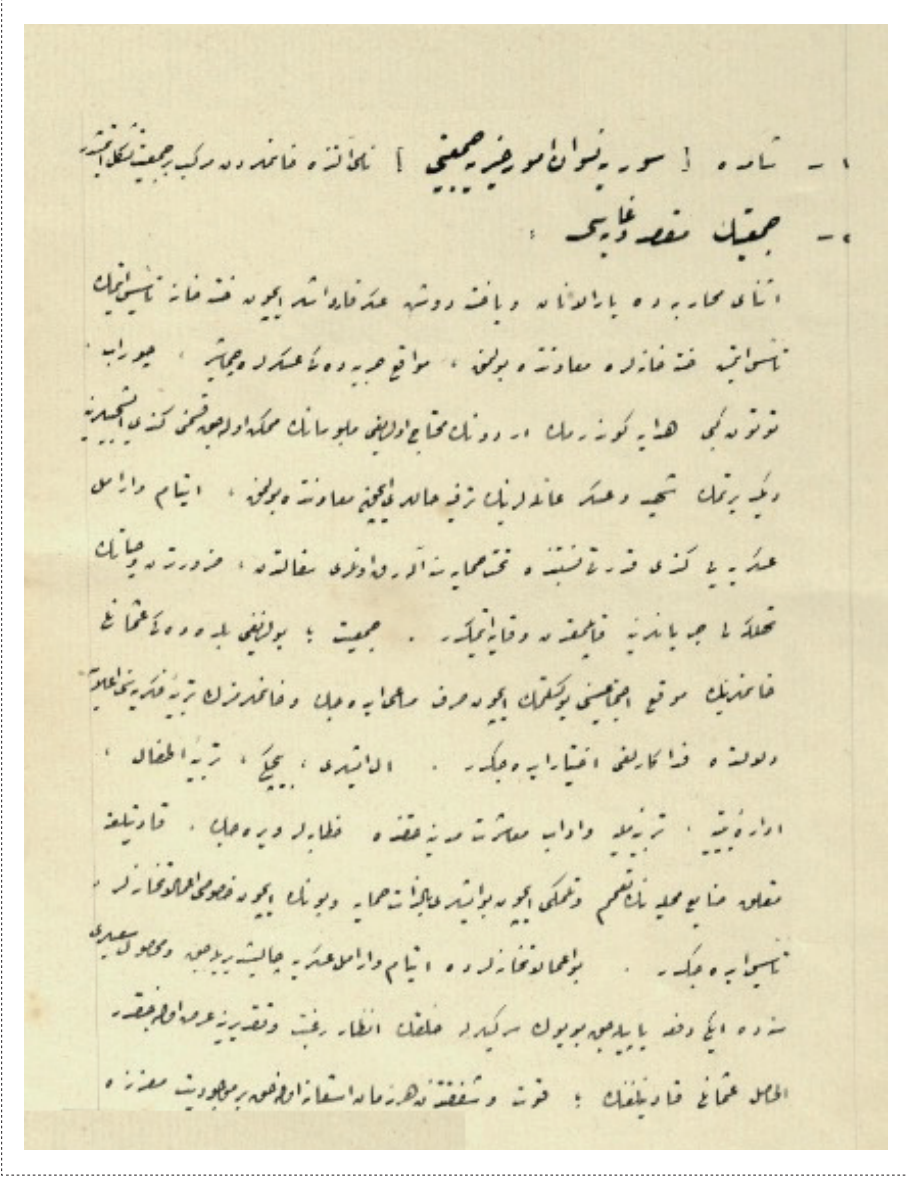 ١ – شامده [ سوريه نسوان امور خيريه جمعيتى ] نامى آلتنده خانملردن مركب بر جمعيت تشكل ايتمشدر
٢ – جمعيتك مقصد وغايه سى :
اثناى محاربه ده يارالانان وياخسته دوشن عسكر قارداشلر ايچون خسته خانه تأسيس ايتمك
تأسيس ايتمش خسته خانه لره معاونتده بولنمق ، مواقع حربيه ده كى عسكرلره چماشير ، چوراب ،
توتون كبى هدايا كوندرمك اردونك محتاج اولديغى ملبوساتك ممكن اوله جق قسمنى كندى
ديكديرتمك شهيد وعسكر عائله لرينك ترفيه حاللرى ايچون معاونتده بولنمق ، ايتام وارامل
عسكريه يى كندى قدرتى نسبتنده تحت حمايه سنه آله رق اونلرى سفالتدن ، ضرورتدن وحياتك
تهلكه لى جريانلرينه قاپيلمقدن وقايه ايتمكدر . جمعيت ؛ بولنديغى بلده ده كى عثمانلى
خانملرينك موقع اجتماعيسنى يوكسلتمك ايچون صرف مساعى ايده جك وخانملرمزك تربيۀ فكريه سنى اعلا
يولنده فداكارلغى اختيار ايده جكدر . ال ايشلرى ، بيچكى ، تربيۀ اطفال ،
ادارۀ بيتيه ، تربيۀ مليه وآداب معاشرت مدنيه حقنده خطابه لر ويره جك . قادينلغه
متعلق صنايع محليه نك تعميم وترقيسى ايچون بو ايشلرى بالذات حمايه وبونك ايچون خصوصى اعمالاتخانه لر
تأسيس ايده جكدر . بو اعمالاتخانه لرده ايتام وارامل عسكريه چاليشديريله جق ومحصول سعيلرى
سنه ده ايكى دفعه ياپيله جق بويوك سركيلرله خلقك انظار رغبت وتقديرينه عرض اولنه جقدر
الحاصل عثمانلى قادينلغنك ؛ قوت وشفقتندن هر زمان استفاده اولنه جق بر موجوديت معززه